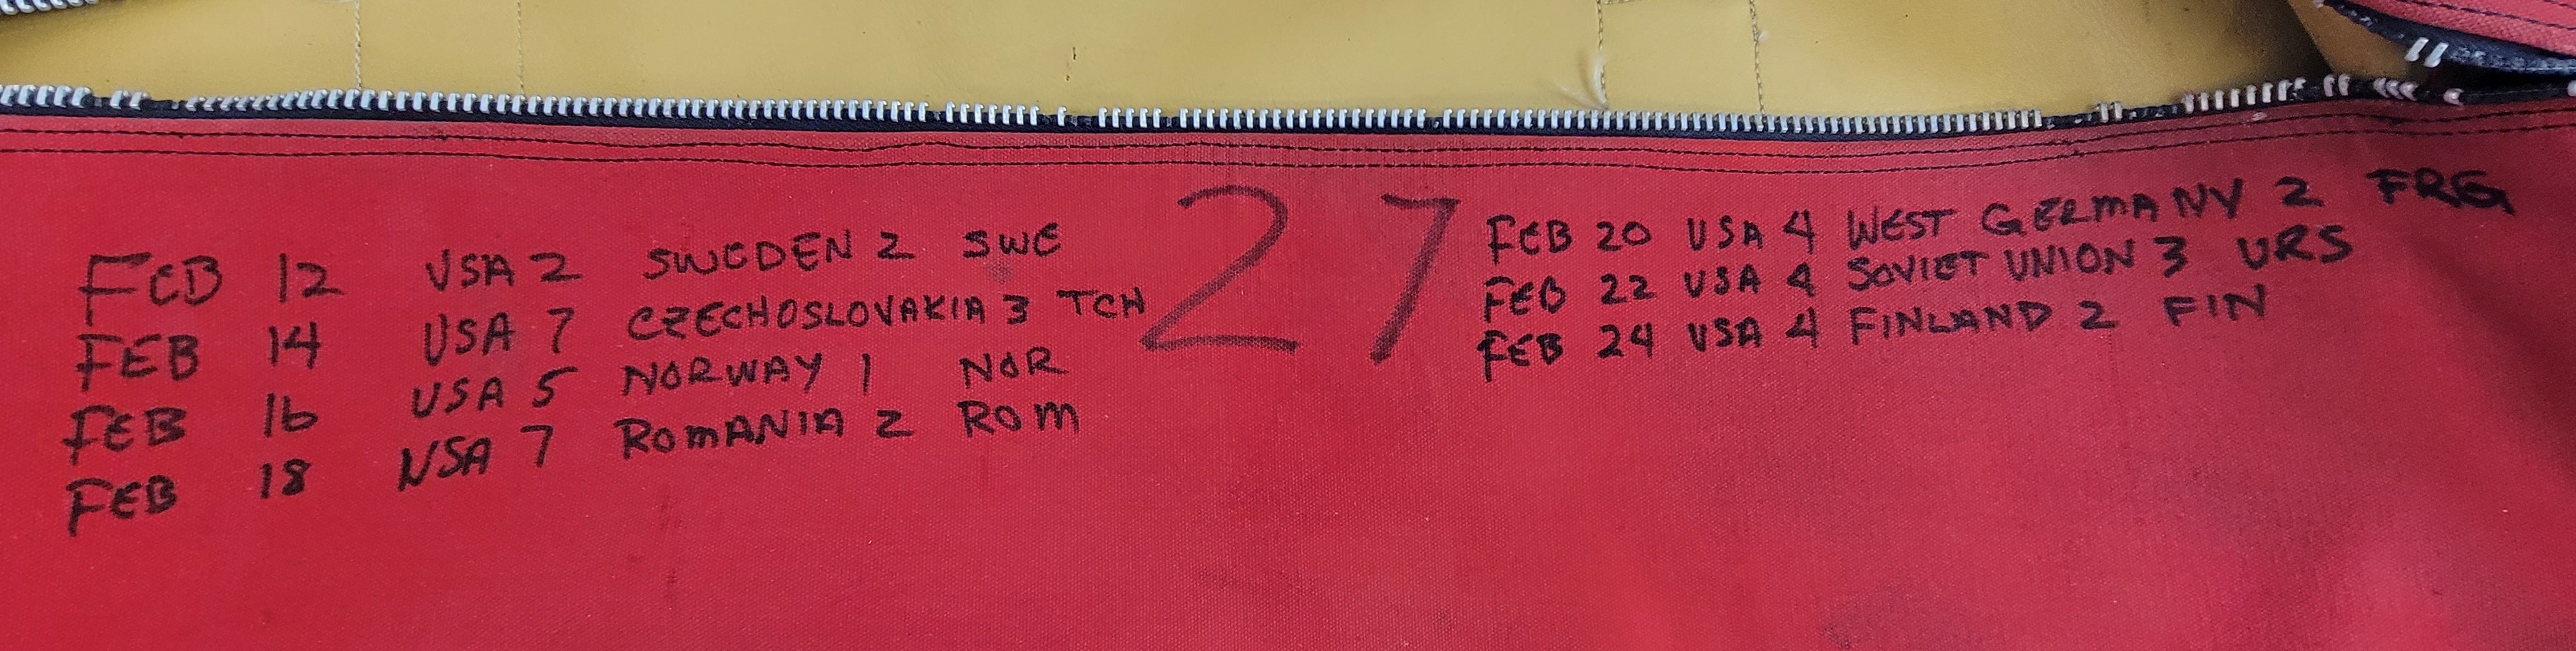 FEB 12 USA 2 SWEDEN 2 SWE
FEB 14 USA 7 CZECHOSLOVAKIA 3 TCH
FEB 16 USA 5 NORWAY 1 NOR
FEB 18 USA 7 ROMANIA 2 ROM
27
FEB 20 USA 4 WEST GERMANY 2 FRG
FEB 22 USA 4 SOVIET UNION 3 URS
FEB 24 USA 4 FINLAND 2 FIN